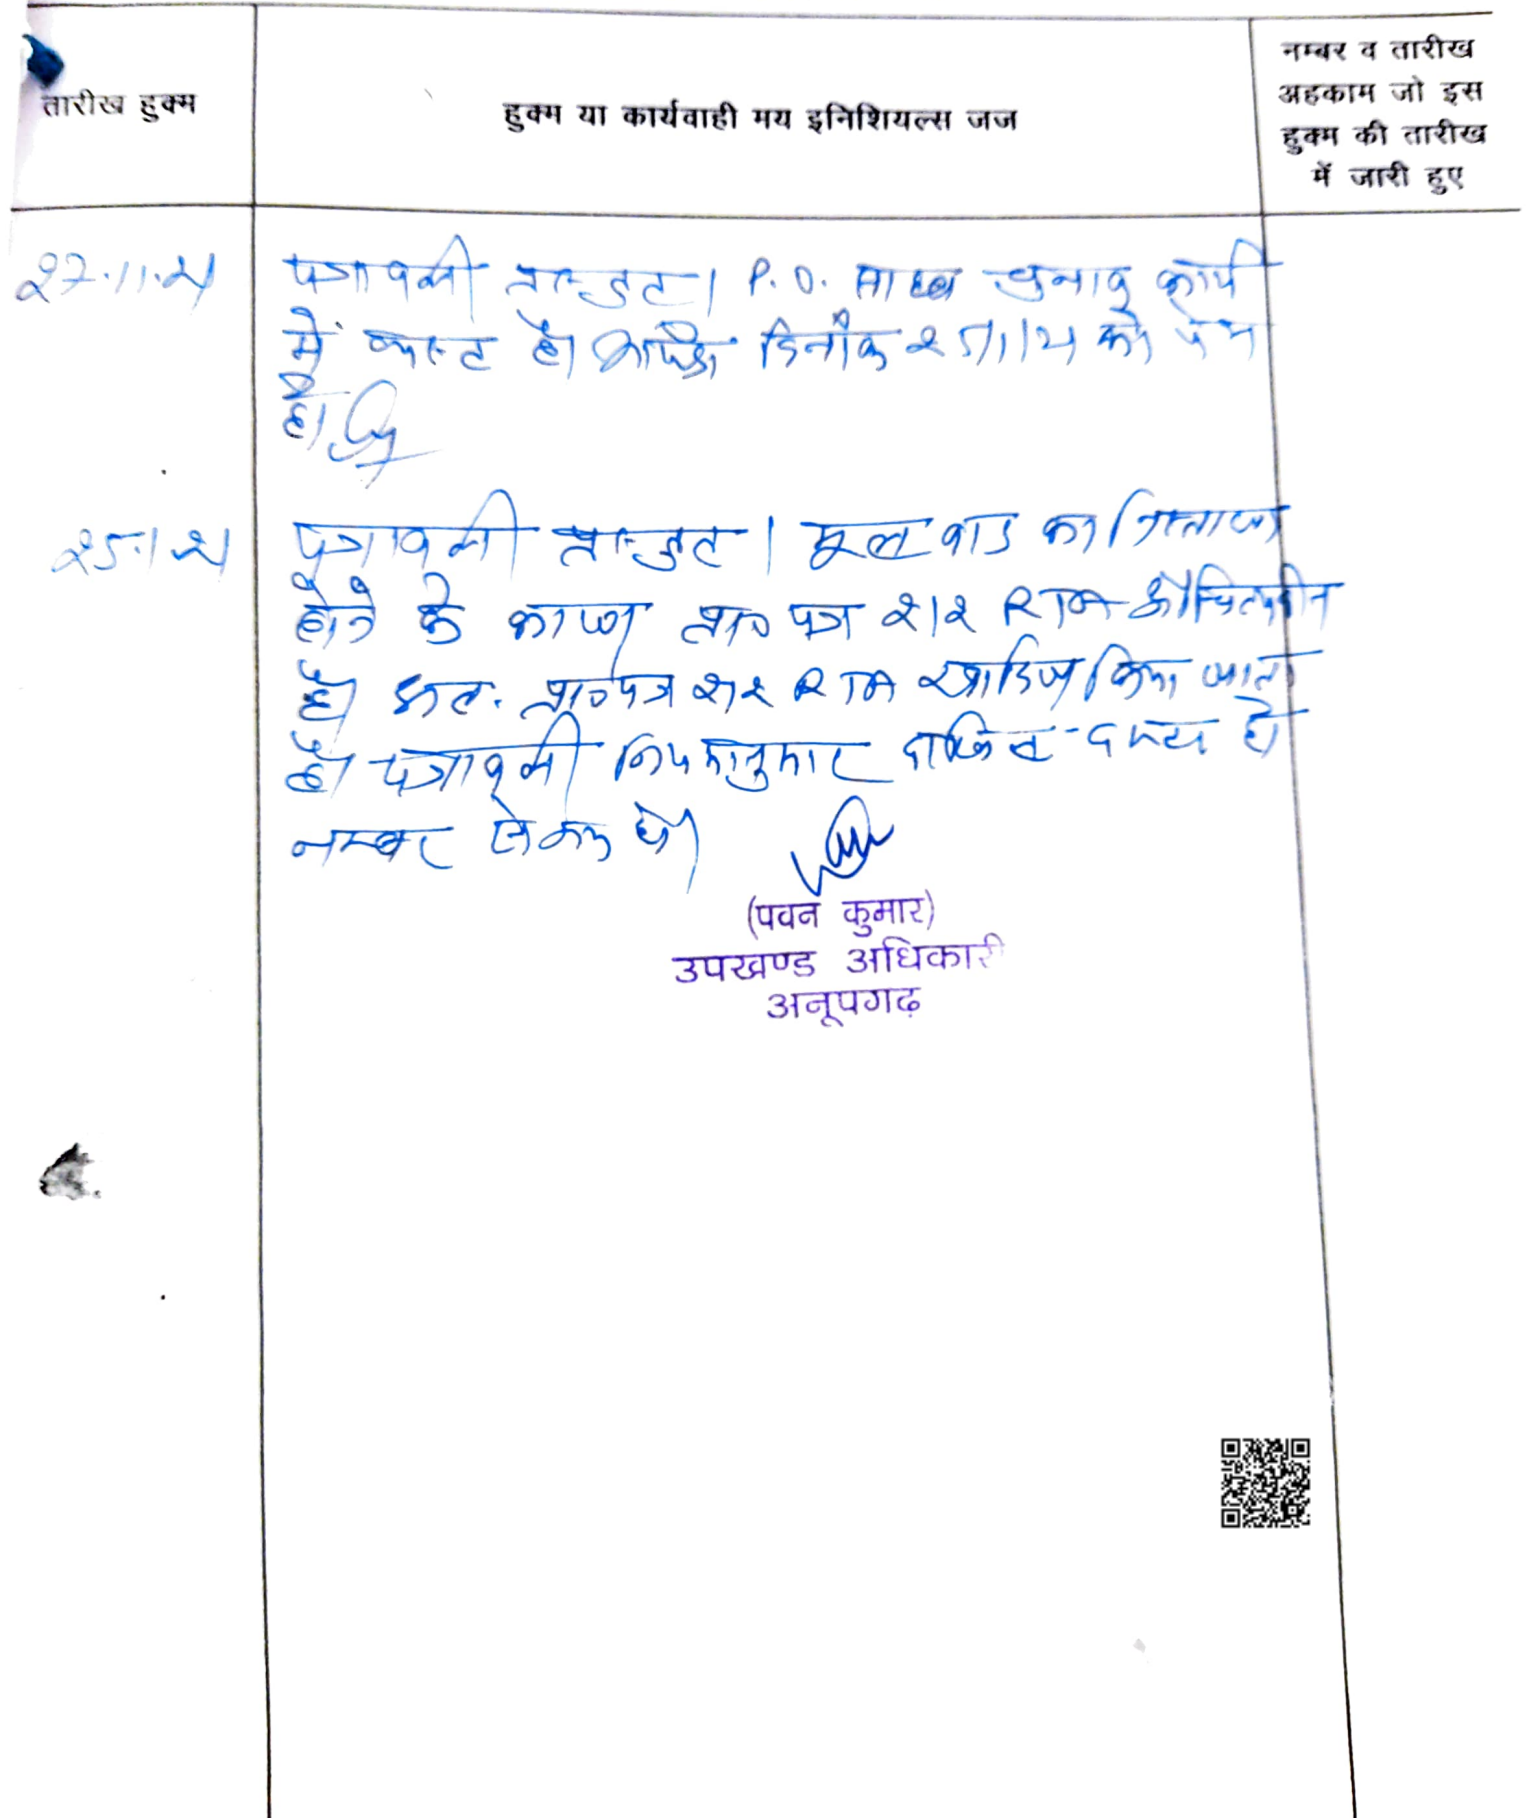 तारीख हुक्म
हुक्म या कार्यवाही मय इनिशियल्स जज
नम्बर व तारीख
अहकाम जो इस
हुक्म की तारीख
में जारी हुए
पत्रावली प्रस्तुत। P.O. साहब चुनाव कार्य
में व्यस्त है। दिनांक को पेश
है।
पत्रावली प्रस्तुत। मूल वाद का निस्तारण
होने के कारण प्रा० पत्र 212 RTA औचित्यहीन
है। अतः प्रा०पत्र 212 RTA खारिज किया जाता
है। पत्रावली नियमानुसार दाखिल दफ्तर हो।
नम्बर से कम हो।
(पवन कुमार)
उपखण्ड अधिकारी
अनूपगढ़